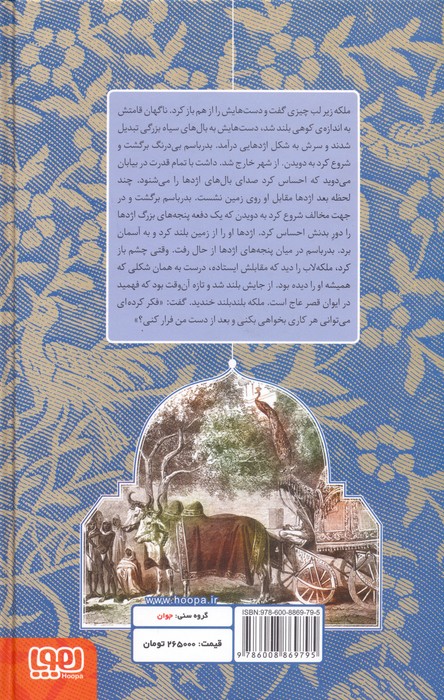 ملکه زیر لب چیزی گفت و دست‌هایش را از هم باز کرد. ناگهان قامتش
به اندازه‌ی کوهی بلند شد، دست‌هایش به بال‌های سیاه بزرگی تبدیل
شدند و سرش به شکل اژدهایی درآمد. بدرباسم بی‌درنگ برگشت و
شروع کرد به دویدن. از شهر خارج شد. داشت با تمام قدرت در بیابان
می‌دوید که احساس کرد صدای بال‌های اژدها را می‌شنود. چند
لحظه بعد اژدها مقابل او روی زمین نشست. بدرباسم برگشت و در
جهت مخالف شروع کرد به دویدن که یک دفعه پنجه‌های بزرگ اژدها
را دور بدنش احساس کرد. اژدها او را از زمین بلند کرد و به آسمان
برد. بدرباسم در میان پنجه‌های اژدها از حال رفت. وقتی چشم باز
کرد، ملکه‌لاب را دید که مقابلش ایستاده، درست به همان شکلی که
همیشه او را دیده بود. از جایش بلند شد و تازه آن‌وقت بود که فهمید
در ایوان قصر عاج است. ملکه بلندبلند خندید. گفت: «فکر کرده‌ای
می‌توانی هر کاری بخواهی بکنی و بعد از دست من فرار کنی؟»
www.hoopa.ir
گروه سنی: جوان
قیمت: ۲۶۵۰۰۰ تومان
ISBN:978-600-8869-79-5
9 786008 869795
هوپا
Hoopa